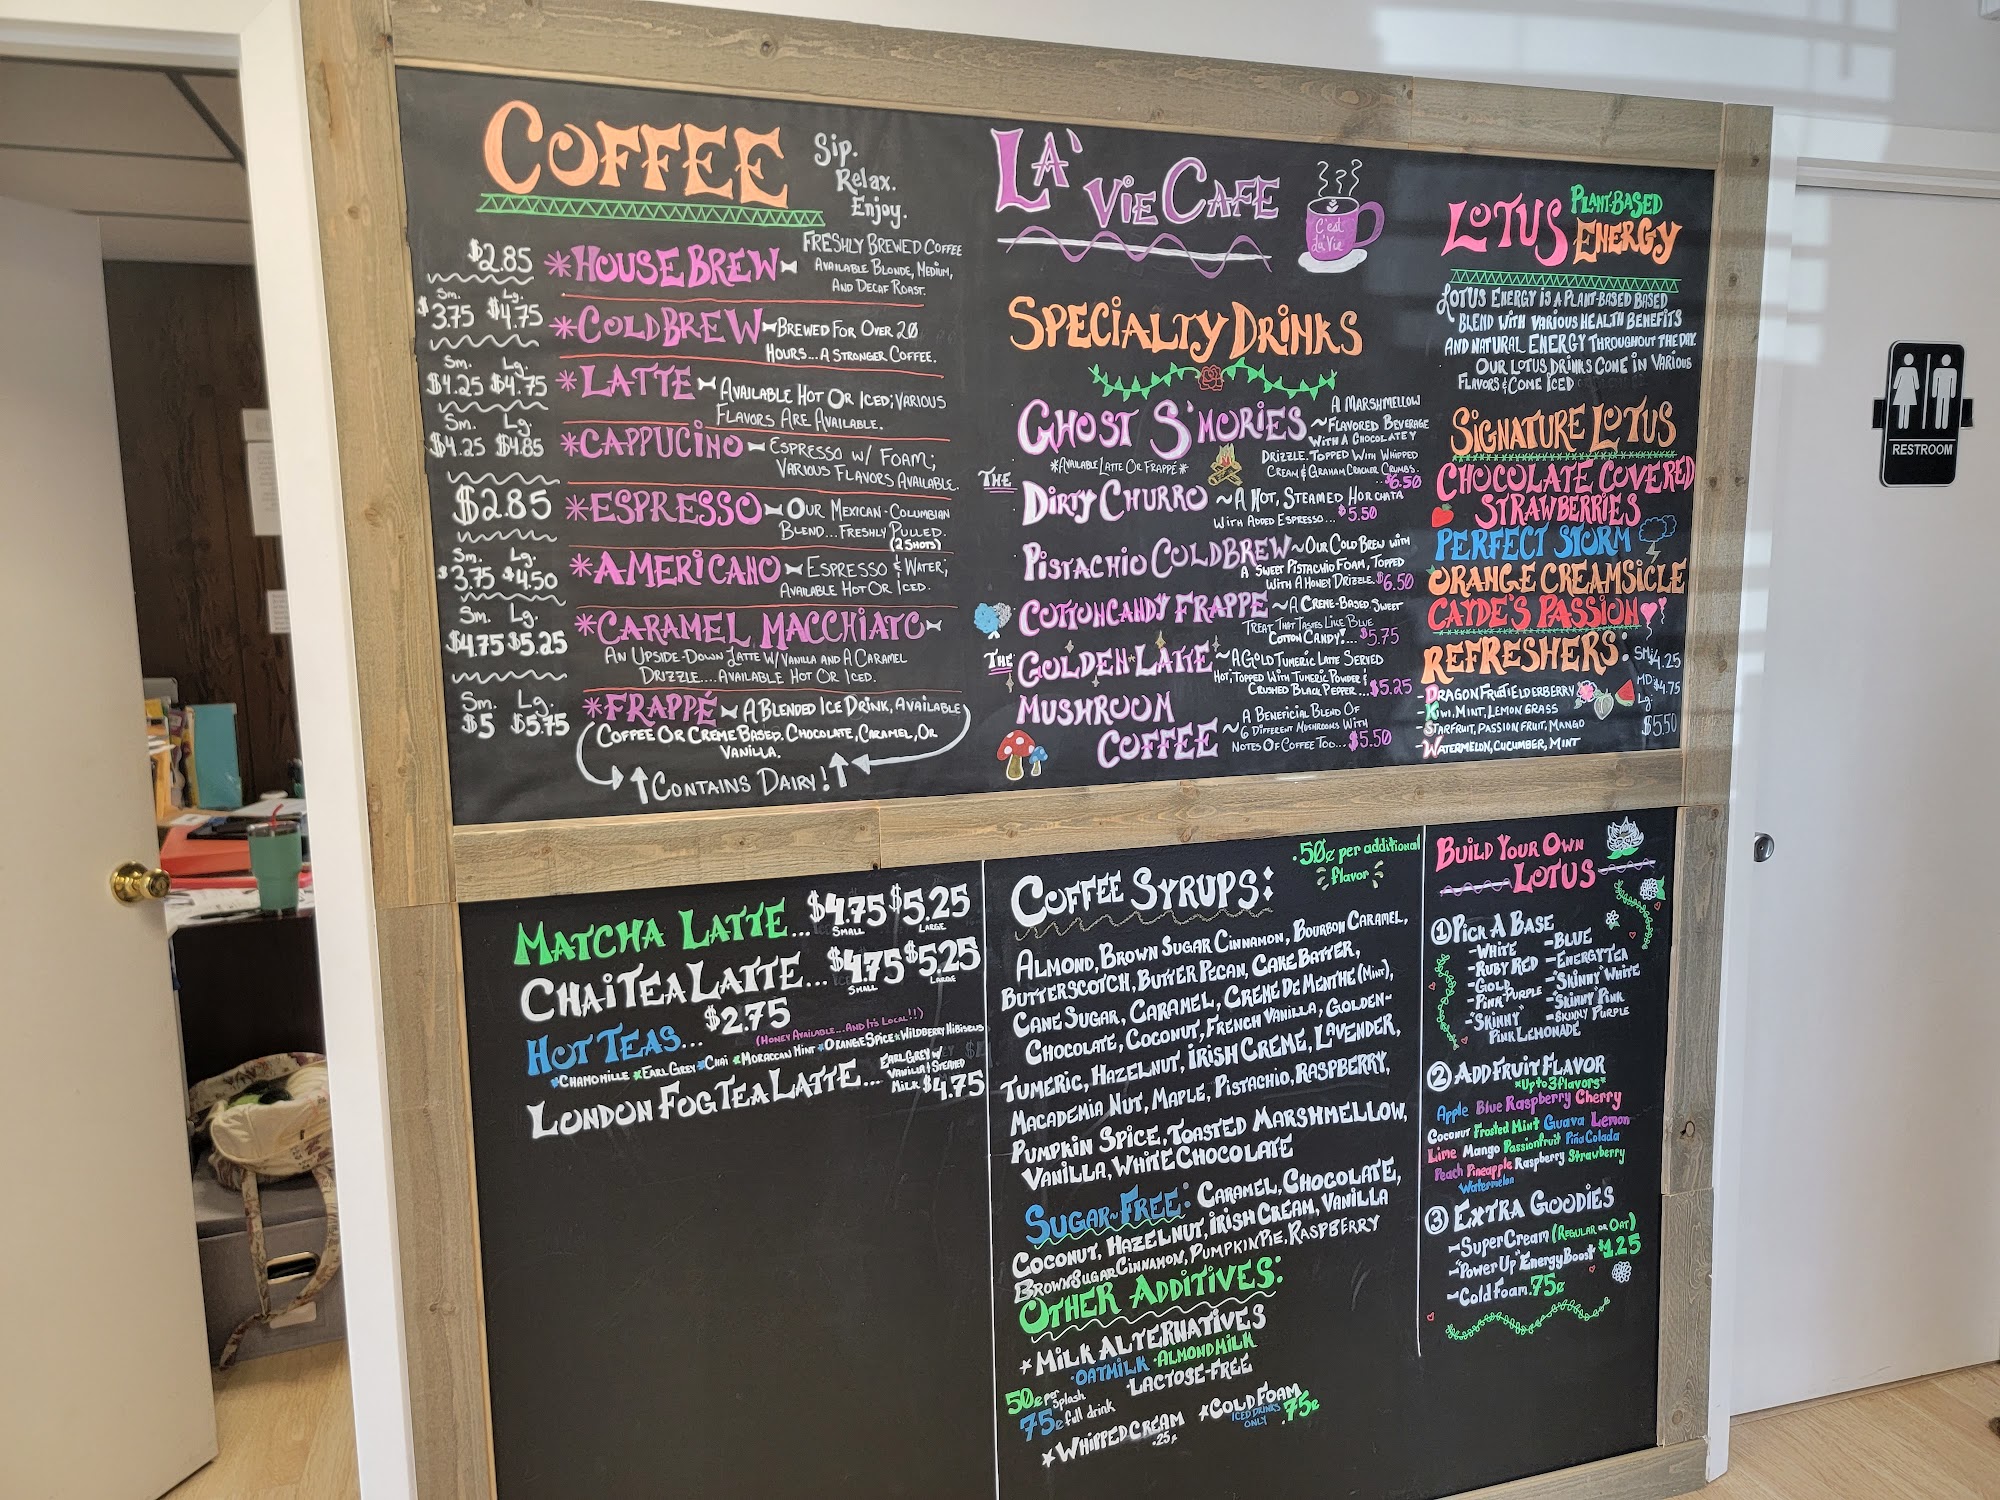 COFFEE
Sip.
Relax.
Enjoy.
$2.85 *HOUSE BREW FRESHLY BREWED COFFEE
AVAILABLE BLONDE, MEDIUM,
AND DECAF ROAST.
Sm. Lg.
$3.75 $4.75 *COLD BREW BREWED FOR OVER 20
HOURS...A STRONGER COFFEE.
Sm. Lg.
$4.25 $4.75 *LATTE AVAILABLE HOT OR ICED; VARIOUS
FLAVORS ARE AVAILABLE.
Sm. Lg.
$4.25 $4.85 *CAPPUCINO ESPRESSO W/ FOAM;
VARIOUS FLAVORS AVAILABLE.
$2.85 *ESPRESSO OUR MEXICAN-COLUMBIAN
BLEND...FRESHLY PULLED.
(2 SHOTS)
Sm. Lg.
$3.75 $4.50 *AMERICANO ESPRESSO & WATER;
AVAILABLE HOT OR ICED.
Sm. Lg.
$4.75 $5.25 *CARAMEL MACCHIATO
AN UPSIDE-DOWN LATTE W/VANILLA AND A CARAMEL
DRIZZLE....AVAILABLE HOT OR ICED.
Sm. Lg.
$5 $5.75 *FRAPPÉ A BLENDED ICE DRINK, AVAILABLE
COFFEE OR CREME BASED. CHOCOLATE, CARAMEL, OR
VANILLA.
CONTAINS DAIRY!
LA' VIE CAFE
C'est
La'Vie
SPECIALTY DRINKS
GHOST S'MORIES ~ A MARSHMELLOW
FLAVORED BEVERAGE
WITH A CHOCOLATEY
DRIZZLE. TOPPED WITH WHIPPED
CREAM & GRAHAM CRACKER CRUMBS.
...$6.50
*AVAILABLE LATTE OR FRAPPÉ*
THE DIRTY CHURRO ~A HOT, STEAMED HORCHATA
WITH ADDED ESPRESSO...$5.50
PISTACHIO COLD BREW~OUR COLD BREW WITH
A SWEET PISTACHIO FOAM, TOPPED
WITH A HONEY DRIZZLE. $6.50
COTTON CANDY FRAPPÉ ~A CREME-BASED SWEET
TREAT THAT TASTES LIKE BLUE
COTTON CANDY!...$5.75
THE GOLDEN LATTE ~A GOLD TUMERIC LATTE SERVED
HOT, TOPPED WITH TUMERIC POWDER &
CRUSHED BLACK PEPPER...$5.25
MUSHROOM
COFFEE ~ A BENEFICIAL BLEND OF
6 DIFFERENT MUSHROOMS WITH
NOTES OF COFFEE TOO...$5.50
LOTUS PLANT-BASED
ENERGY
LOTUS ENERGY IS A PLANT-BASED BASED
BLEND WITH VARIOUS HEALTH BENEFITS
AND NATURAL ENERGY THROUGHOUT THE DAY.
OUR LOTUS DRINKS COME IN VARIOUS
FLAVORS & COME ICED
SIGNATURE LOTUS
CHOCOLATE COVERED
STRAWBERRIES
PERFECT STORM
ORANGE CREAMSICLE
CAYDE'S PASSION
REFRESHERS:
SM $4.25
MD $4.75
Lg
$5.50
-DRAGON FRUIT ELDERBERRY
-KIWI, MINT, LEMON GRASS
-STARFRUIT, PASSION FRUIT, MANGO
-WATERMELON, CUCUMBER, MINT
RESTROOM
MATCHA LATTE... $4.75 $5.25
SMALL LARGE
CHAI TEA LATTE... $4.75 $5.25
SMALL LARGE
HOT TEAS... $2.75
(HONEY AVAILABLE...AND IT'S LOCAL!!)
*CHAMOMILLE *EARL GREY *CHAI *MORACCAN MINT *ORANGE SPICE *WILDBERRY HIBISCUS
LONDON FOG TEA LATTE... EARL GREY W/
VANILLA & STEAMED
MILK $4.75
COFFEE SYRUPS:
.50¢ per additional
flavor
ALMOND, BROWN SUGAR CINNAMON, BOURBON CARAMEL,
BUTTERSCOTCH, BUTTER PECAN, CAKE BATTER,
CANE SUGAR, CARAMEL, CREME DE MENTHE (MINT),
CHOCOLATE, COCONUT, FRENCH VANILLA, GOLDEN-
TUMERIC, HAZELNUT, IRISH CREME, LAVENDER,
MACADEMIA NUT, MAPLE, PISTACHIO, RASPBERRY,
PUMPKIN SPICE, TOASTED MARSHMELLOW,
VANILLA, WHITE CHOCOLATE
SUGAR-FREE: CARAMEL, CHOCOLATE,
COCONUT, HAZELNUT, IRISH CREAM, VANILLA
BROWN SUGAR CINNAMON, PUMPKIN PIE, RASPBERRY
OTHER ADDITIVES:
*MILK ALTERNATIVES
·OATMILK ·ALMOND MILK
·LACTOSE-FREE
50¢ per splash
75¢ full drink
*WHIPPED CREAM
.25¢
*COLD FOAM
ICED DRINKS
ONLY .75¢
BUILD YOUR OWN
LOTUS
① PICK A BASE
-WHITE -BLUE
-RUBY RED -ENERGY TEA
-GOLD -"SKINNY" WHITE
-PINK PURPLE -"SKINNY" PINK
-"SKINNY" -SKINNY PURPLE
PINK LEMONADE
② ADD FRUIT FLAVOR
*Up to 3 flavors*
Apple Blue Raspberry Cherry
Coconut Frosted Mint Guava Lemon
Lime Mango Passionfruit Piña Colada
Peach Pineapple Raspberry Strawberry
Watermelon
③ EXTRA GOODIES
-SUPER CREAM (REGULAR OR OAT)
-"POWER UP" ENERGY BOOST $1.25
-COLD FOAM .75¢